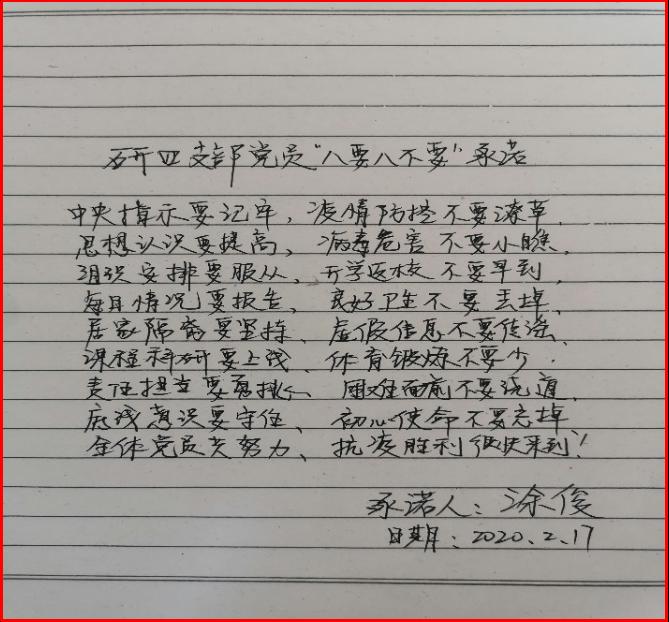 研四支部党员"八要八不要"承诺
中央指示要记牢，疫情防控不要潦草，
思想认识要提高，病毒危害不要小瞧，
组织安排要服从、开学返校不要早到，
每日情况要报告、良好卫生不要丢掉，
居家隔离要坚持、虚假信息不要传染、
课程科研要上线、体育锻炼不要少.
责任担当要勇挑、困难面前不要绕道，
底线意识要守住、初心使命不要忘掉
全体党员共努力、抗疫胜利很快来到！
承诺人：涂俊
日期：2020.2.17